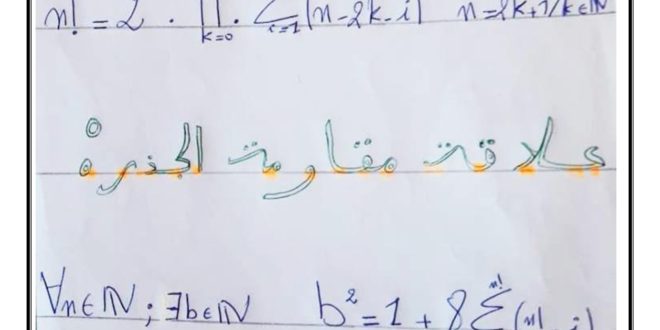 n! = 2 . ∏ k=0 . ∑ i=1 (n-2k-i) n=2k+1/k∈ℕ
علاقة مقارمة الجذرة
∀n∈ℕ ; ∃b∈ℕ b² = 1 + 8 ∑ n! (n! - i)